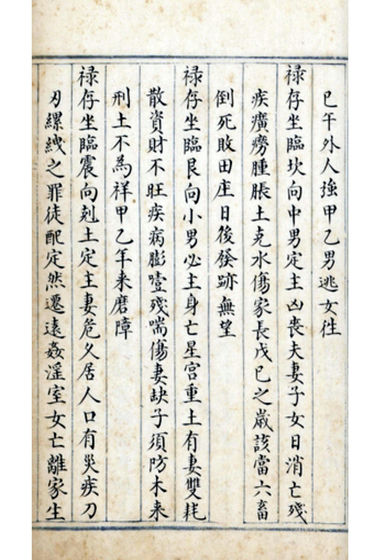 巳午外人強甲乙男逃女性
禄存坐臨坎向中男定主凶喪夫妻子女日消亡殘
疾癀癆腫脹土克水傷家長戊巳之歲該當六畜
倒死敗田庄日後發跡無望
禄存坐臨艮向小男必主身亡星宮重土有妻雙耗
散資財不旺疾病膨壹殘喘傷妻缺子須防木來
刑土不為祥甲乙年来磨障
禄存坐臨震向剋土定主妻危久居人口有災疾刀
刃縲絏之罪徒配定然遷遠姦滛室女亡離家生